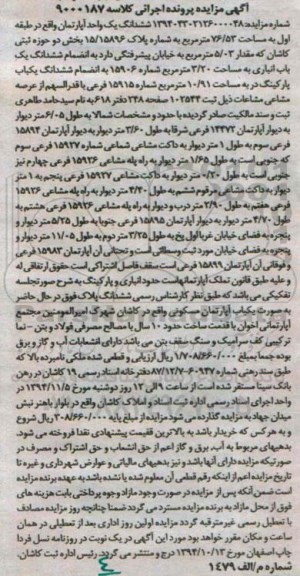 آگهی مزایده پرونده اجرائی کلاسه ۹۰۰۰۱۸۷
شماره مزایده: ۱۳۹۴۰۳۳۰۲۱۲۶۰۰۰۰۲۸ ششدانگ یک واحد آپارتمان واقع در طبقه
اول به مساحت ۷۶/۵۲ مترمربع به شماره پلاک ۱۵/۱۵۸۹۶ بخش دو حوزه ثبتی
کاشان که مقدار ۵/۰۳ مترمربع به خیابان پیشرفتگی دارد به انضمام ششدانگ یک
باب انباری به مساحت ۳/۲۰ مترمربع به شماره ۱۵۹۰۶ به انضمام ششدانگ یکباب
پارکینگ در به مساحت ۱۰/۹۱ مترمربع شماره ۱۵۹۱۵ فرعی با قدرالسهم از عرصه
مشاعی مشاعات ذیل ثبت ۱۰۲۵۴۴ صفحه ۲۴۸ دفتر ۶۱۸ به نام سیدحامد طاهری
ثبت و سند مالکیت صادر گردیده با حدود و مشخصات شمالا به طول ۶/۰۵ متر دیوار
به دیوار آپارتمان ۱۴۴۷۲ فرعی شرقا به طول ۳/۶۰ متر دیوار به دیوار آپارتمان ۱۵۸۹۴
فرعی سوم به طول ۱ متر دیوار به داکت مشاعی شماعی شماره ۱۵۹۲۷ فرعی سوم
که جنوبی است به طول ۱/۶۵ متر دیوار به راه پله مشاعی ۱۵۹۲۶ فرعی چهارم نیز
جنوبی است به طول ۰/۲۰ متر دیوار به داکت مشاعی ۱۵۹۲۷ فرعی پنجم به ۱ متر
دیوار به داکت مشاعی مرقوم ششم به طول ۴/۴۰ متر دیوار به راه پله مشاعی ۱۵۹۲۶
فرعی هفتم به طول ۲/۹۰ متر درب و دیوار به راه پله مشاعی ۱۵۹۲۶ فرعی هشتم به
طول ۴/۷۰ متر دیوار به دیوار آپارتمان ۱۵۸۹۵ فرعی جنوبا به طول ۵/۲۵ متر دیوار و
پنجره به فضای خیابان غربا اول پخ به طول ۳/۲۵ متر دوم به طول ۱۱/۰۵ متر دیوار و
پنجره به فضای خیابان مورد ثبت وسطانی است و تحتانی آن آپارتمان ۱۵۹۸۳ فرعی
و فوقانی آن آپارتمان ۱۵۸۹۹ فرعی است سقف فاصل اشتراکی است حقوق ارتفاقی له
و علیه طبق قانون تملک آپارتمانهاست حدود انباری و پارکینگ به شرح صورتجلسه
تفکیکی می باشد که طبق نظر کارشناس رسمی ششدانگ پلاک فوق در حال حاضر
به صورت یکباب آپارتمان مسکونی واقع در کاشان شهرک امیرالمومنین مجتمع
آپارتمانی اخوان با قدمت ساخت حدود ۱۰ سال با مصالح مصرفی فولاد و بتن – نما
ترکیبی کف سرامیک و سنگ سقف بتن می باشد دارای انشعابات آب و گاز و برق
بوده جمعا بمبلغ ۱/۷۰۸/۶۶۰/۰۰۰ ریال ارزیابی و قطعی شده ملکی نامبرده بالا که
طبق سند رهنی شماره ۶۰۹۴۷-۸۷/۱۲/۷ دفترخانه اسناد رسمی ۱۹ کاشان در رهن
بانک سینا مستقر شده است از ساعت ۹ الی ۱۲ روز دوشنبه مورخ ۱۳۹۴/۱۱/۵ در
واحد اجرای اسناد رسمی اداره ثبت اسناد و املاک کاشان واقع در بلوار باهنر نبش
میدان جهاد به مزایده گذارده می شود مزایده از مبلغ پایه ۱/۷۰۸/۶۶۰/۰۰۰ ریال شروع
و به هر کس که خریدار باشد به بالاترین قیمت پیشنهادی نقدا فروخته می شود.
بدهیهای مربوط به آب، برق و گاز اعم از حق انشعاب و حق اشتراک و مصرف در
صورتیکه مزایده دارای آنها باشد و نیز بدهیهای مالیاتی و عوارض شهرداری و غیره تا
تاریخ مزایده اعم از اینکه رقم قطعی آن معلوم شده یا نشده باشد به عهده برنده مزایده
است ضمن آنکه پس از مزایده در صورت وجود مازاد وجوه پرداختی بابت هزینه های
فوق از محل مازاد به برنده مزایده مسترد می گردد ضمنا چنانچه روز مزایده مصادف
با تعطیل رسمی غیر مترقبه گردد مزایده اولین روز اداری بعد از تعطیلی در همان
ساعت و مکان مقرر خواهد بود مورد این آگهی در یک نوبت در روزنامه نسل فردا
چاپ اصفهان مورخ ۱۳۹۴/۱۰/۱۳ درج و منتشر می گردد. رئیس اداره ثبت کاشان.
شماره م/الف ۱۴۷۹